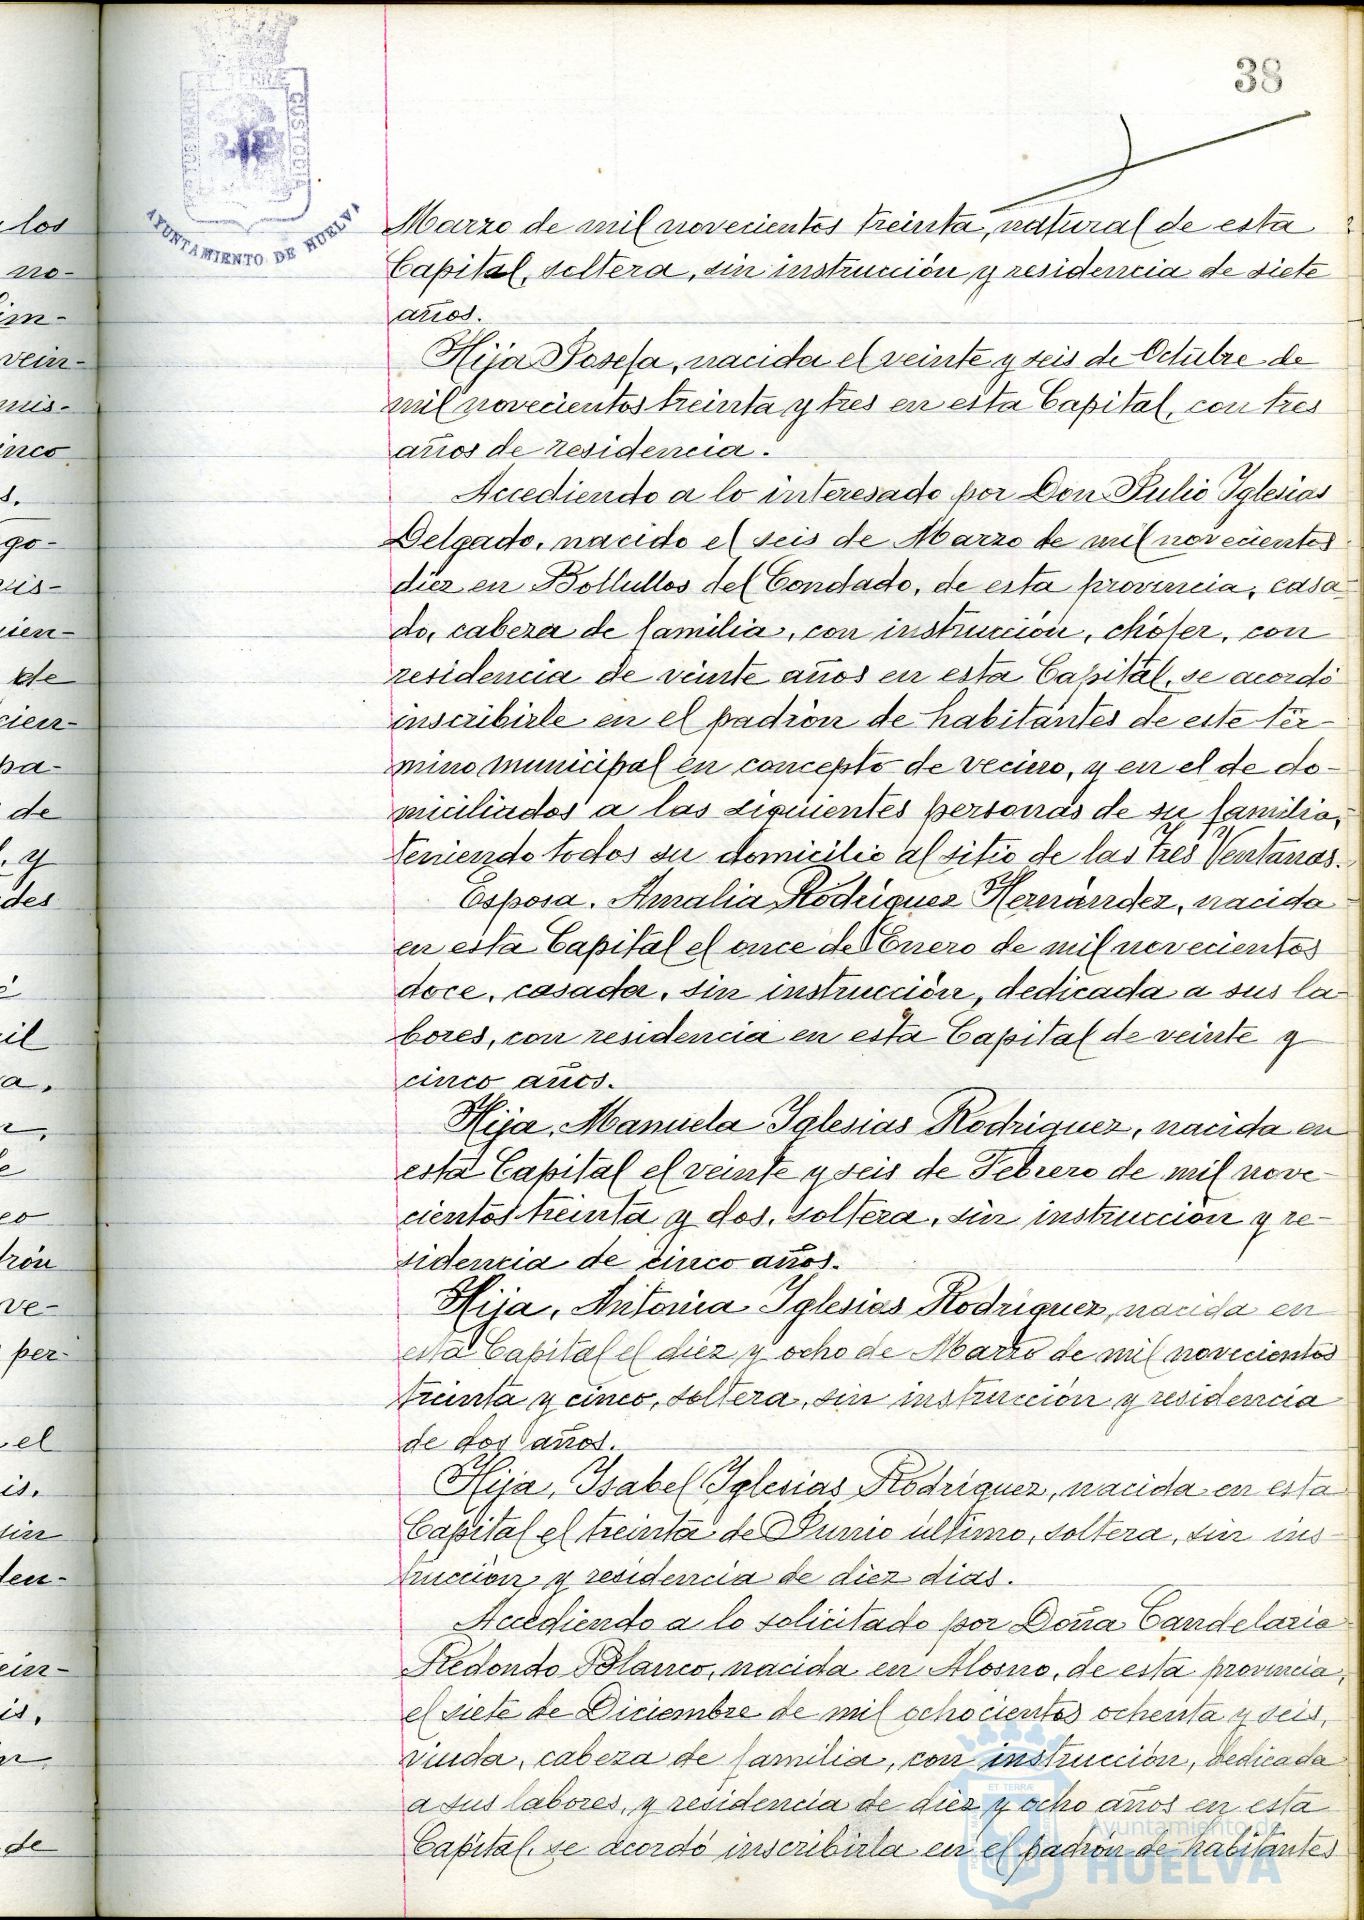 38
PORTUS MARIS ET TERRÆ CUSTODIA
AYUNTAMIENTO DE HUELVA
Marzo de mil novecientos treinta, natural de esta
Capital, soltera, sin instrucción y residencia de siete
años.
Hija Josefa, nacida el veinte y seis de Octubre de
mil novecientos treinta y tres en esta Capital, con tres
años de residencia.
Accediendo a lo interesado por Don Julio Iglesias
Delgado, nacido el seis de Marzo de mil novecientos
diez en Bollullos del Condado, de esta provincia, casa-
do, cabeza de familia, con instrucción, chófer, con
residencia de veinte años en esta Capital, se acordó
inscribirle en el padrón de habitantes de este tér-
mino municipal en concepto de vecino, y en el de do-
miciliados a las siguientes personas de su familia,
teniendo todos su domicilio al sitio de las Tres Ventanas.
Esposa, Amalia Rodríguez Hernández, nacida
en esta Capital el once de Enero de mil novecientos
doce, casada, sin instrucción, dedicada a sus la-
bores, con residencia en esta Capital de veinte y
cinco años.
Hija, Manuela Iglesias Rodriguez, nacida en
esta Capital el veinte y seis de Febrero de mil nove-
cientos treinta y dos, soltera, sin instrucción y re-
sidencia de cinco años.
Hija, Antonia Iglesias Rodriguez, nacida en
esta Capital el diez y ocho de Marzo de mil novecientos
treinta y cinco, soltera, sin instrucción y residencia
de dos años.
Hija, Isabel Iglesias Rodríguez, nacida en esta
Capital el treinta de Junio último, soltera, sin ins-
trucción y residencia de diez dias.
Accediendo a lo solicitado por Doña Candelaria
Redondo Blanco, nacida en Alosno, de esta provincia,
el siete de Diciembre de mil ochocientos ochenta y seis,
viuda, cabeza de familia, con instrucción, dedicada
a sus labores, y residencia de diez y ocho años en esta
Capital, se acordó inscribirla en el padrón de habitantes
Ayuntamiento de
HUELVA
los
no-
im-
vein-
mis-
inco
s.
go-
vis-
cien-
de
cien-
pa-
de
l. y
des
é
il
a,
le
co
drón
ve-
per-
el
is.
sin
den-
ein-
is,
de